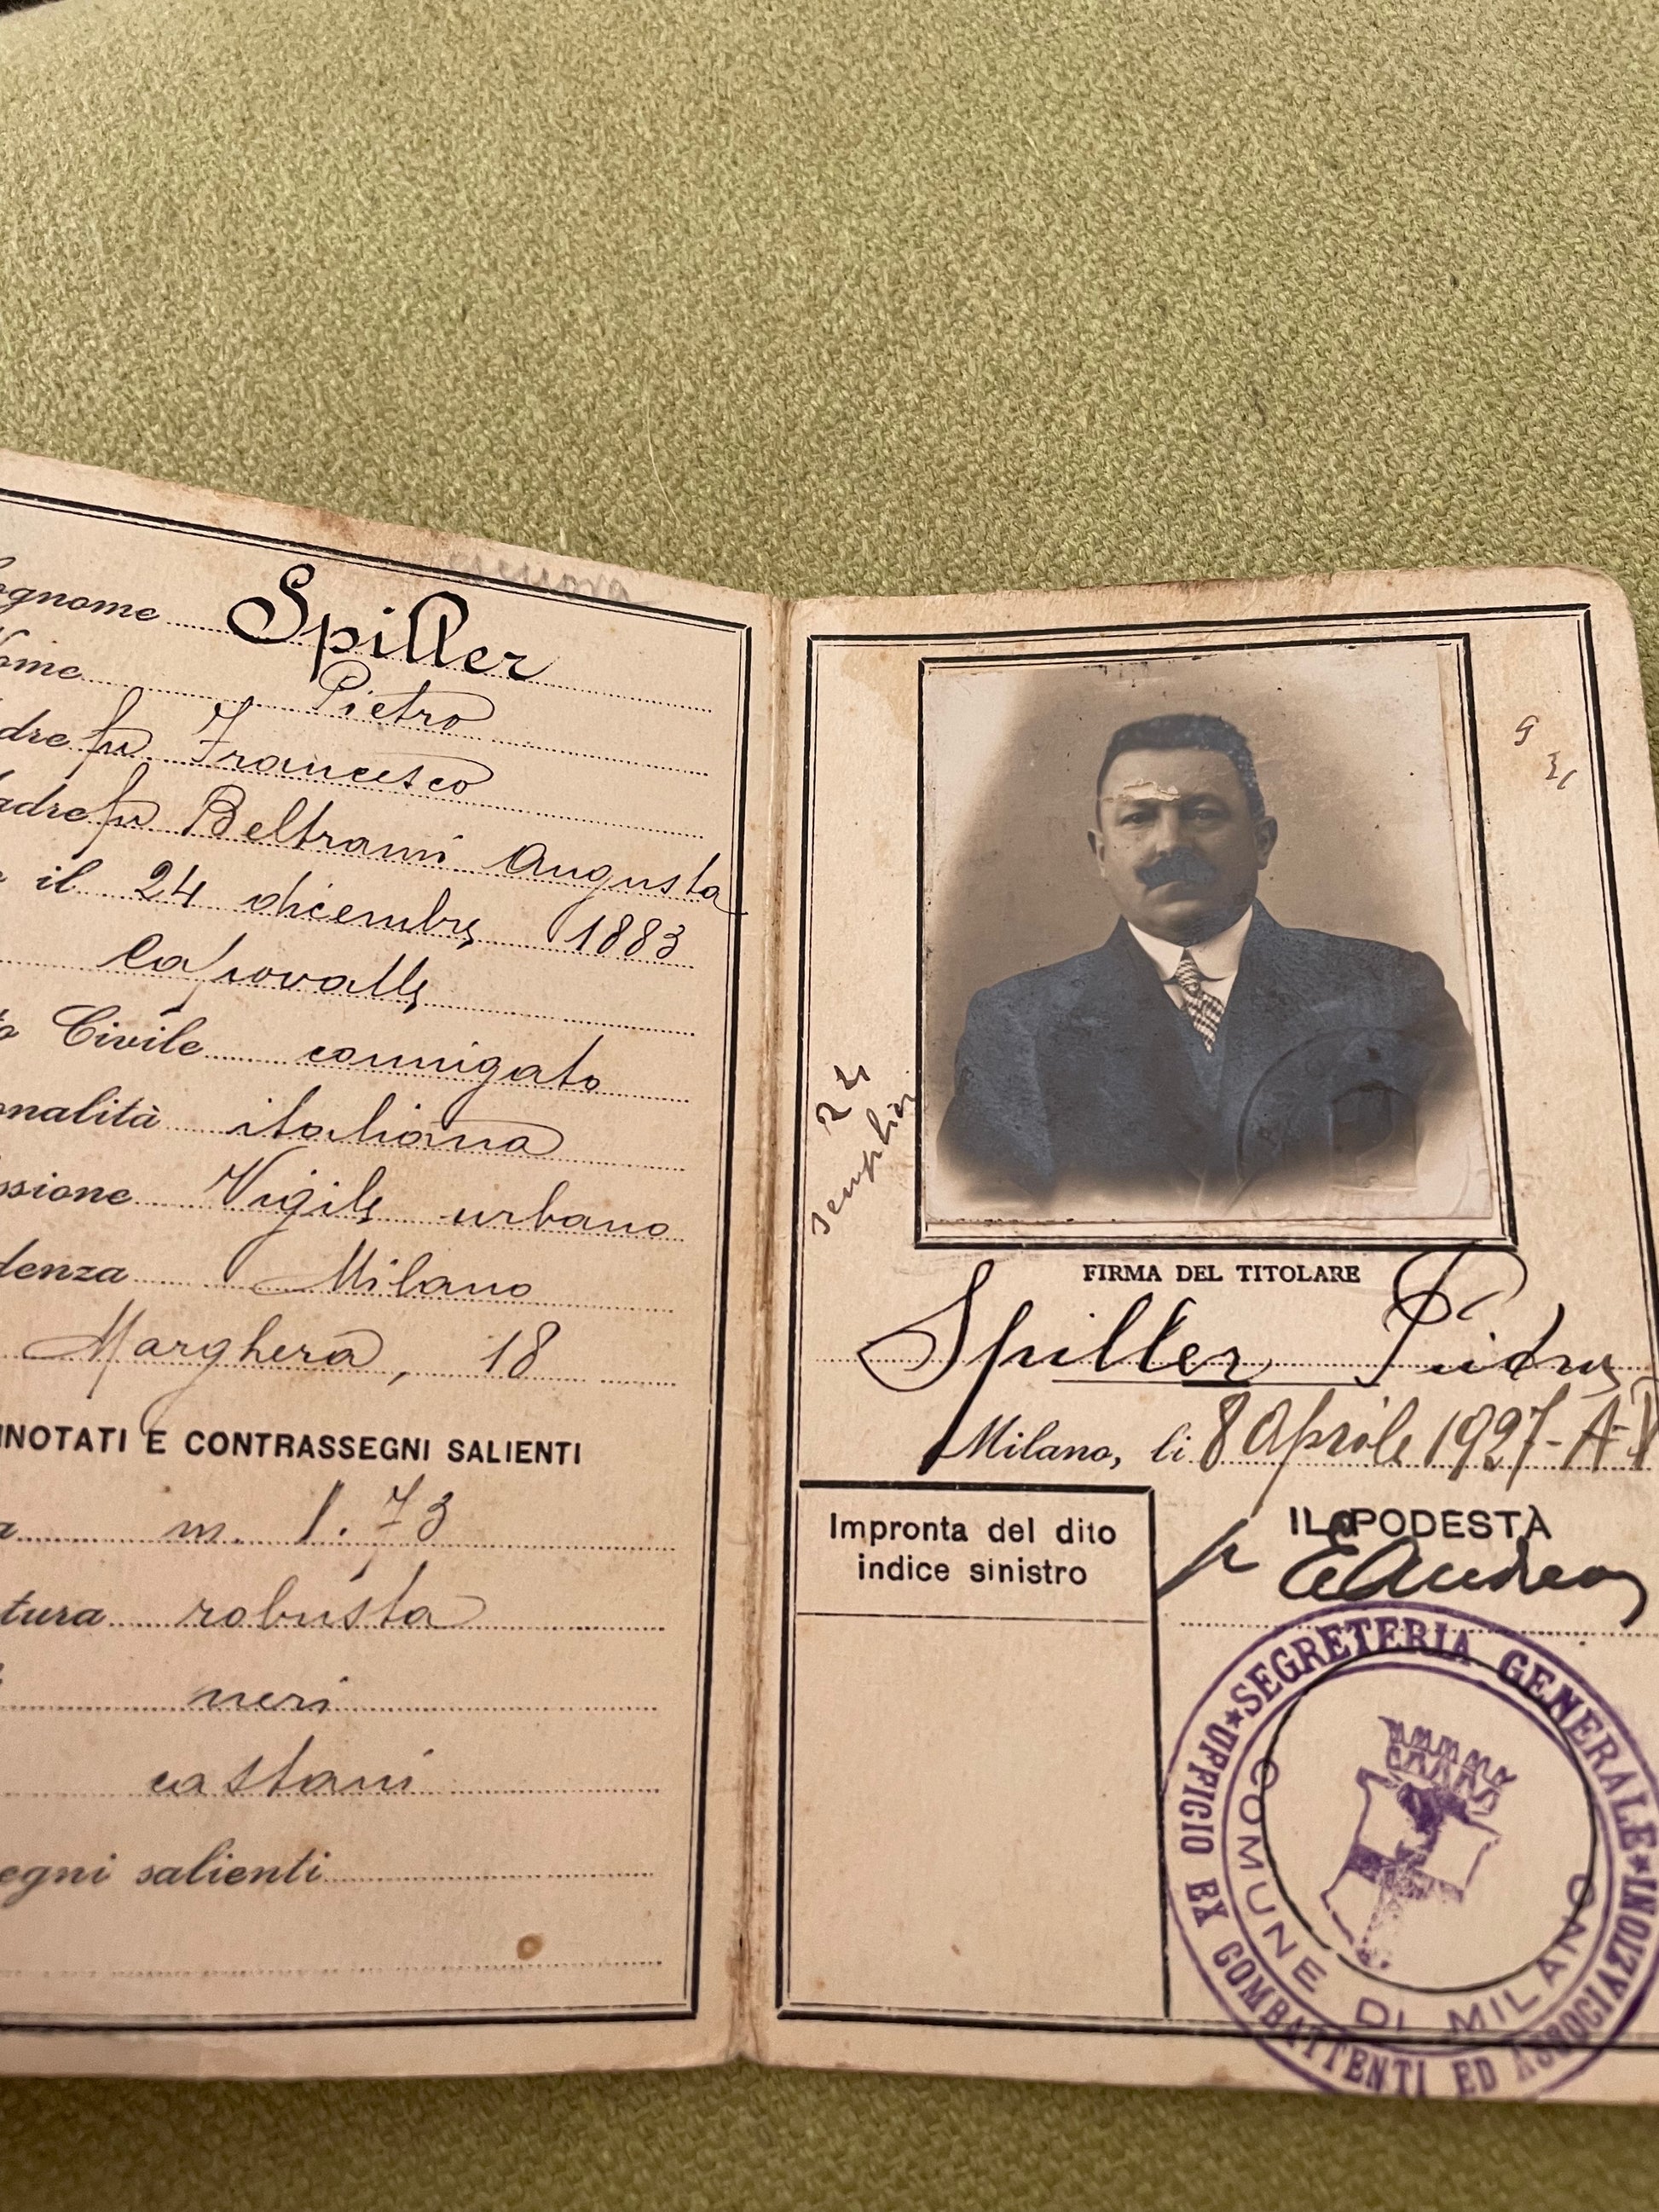 ognome Spiller
ome Pietro
dre fu Francesco
adre fu Beltrami Augusta
il 24 dicembre 1883
Casrovalle
o Civile coniugato
onalità italiana
ssione Vigile urbano
denza Milano
Marghera, 18
NNOTATI E CONTRASSEGNI SALIENTI
a m. 1.73
tura robusta
neri
castani
egni salienti
24
semplice
FIRMA DEL TITOLARE
Spiller Pietro
Milano, li 8 Aprile 1927-A-V
Impronta del dito
indice sinistro
IL PODESTÀ
p
SEGRETERIA GENERALE
UFFICIO EX COMBATTENTI ED ASSOCIAZIONI
COMUNE DI MILANO